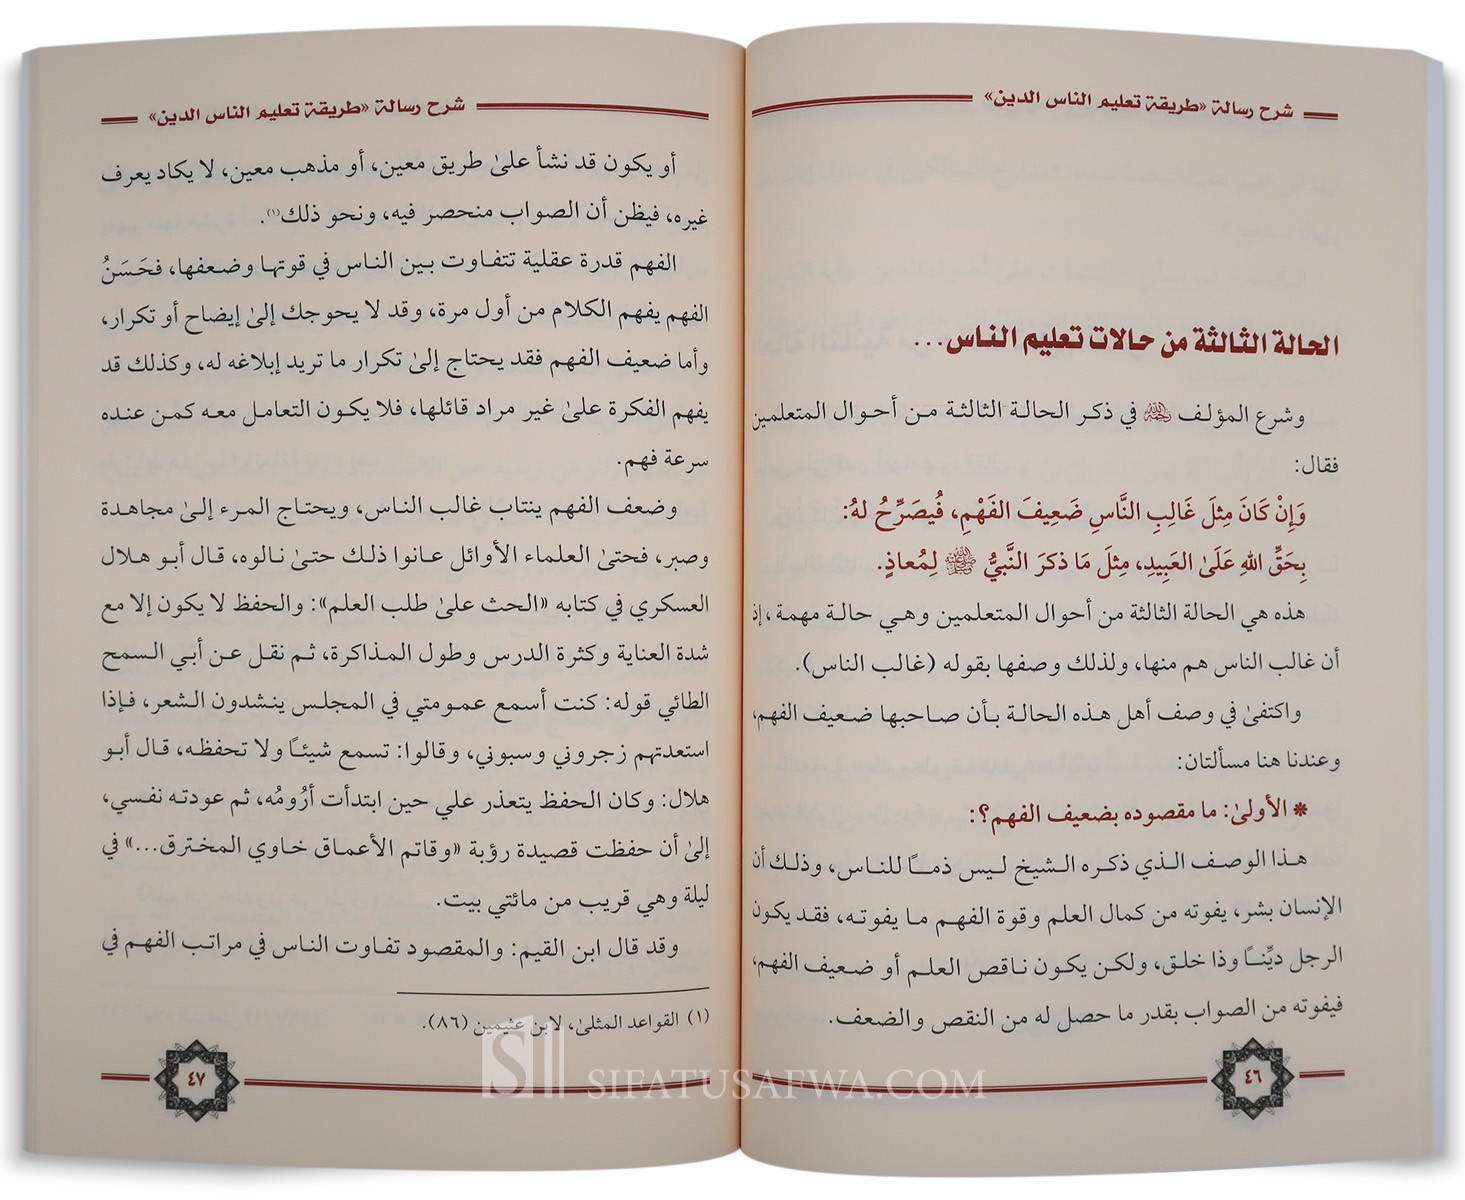 شرح رسالة «طريقة تعليم الناس الدين»
الحالة الثالثة من حالات تعليم الناس...
وشرع المؤلف رحمه الله في ذكر الحالة الثالثة من أحوال المتعلمين
فقال:
وَإِنْ كَانَ مِثلَ غَالِبِ النَّاسِ ضَعِيفَ الفَهْمِ، فُيصَرِّحُ لهُ:
بِحَقِّ اللهِ عَلَىٰ العَبِيدِ، مِثلَ مَا ذكرَ النَّبيُّ ﷺ لِمُعاذٍ.
هذه هي الحالة الثالثة من أحوال المتعلمين وهي حالة مهمة، إذ
أن غالب الناس هم منها، ولذلك وصفها بقوله (غالب الناس).
واكتفىٰ في وصف أهل هذه الحالة بأن صاحبها ضعيف الفهم،
وعندنا هنا مسألتان:
* الأولىٰ: ما مقصوده بضعيف الفهم؟:
هذا الوصف الذي ذكره الشيخ ليس ذمًا للناس، وذلك أن
الإنسان بشر، يفوته من كمال العلم وقوة الفهم ما يفوته، فقد يكون
الرجل ديِّنًا وذا خلق، ولكن يكون ناقص العلم أو ضعيف الفهم،
فيفوته من الصواب بقدر ما حصل له من النقص والضعف.
٤٦
شرح رسالة «طريقة تعليم الناس الدين»
أو يكون قد نشأ علىٰ طريق معين، أو مذهب معين، لا يكاد يعرف
غيره، فيظن أن الصواب منحصر فيه، ونحو ذلك(١).
الفهم قدرة عقلية تتفاوت بين الناس في قوتها وضعفها، فحَسَنُ
الفهم يفهم الكلام من أول مرة، وقد لا يحوجك إلىٰ إيضاح أو تكرار،
وأما ضعيف الفهم فقد يحتاج إلىٰ تكرار ما تريد إبلاغه له، وكذلك قد
يفهم الفكرة علىٰ غير مراد قائلها، فلا يكون التعامل معه كمن عنده
سرعة فهم.
وضعف الفهم ينتاب غالب الناس، ويحتاج المرء إلىٰ مجاهدة
وصبر، فحتىٰ العلماء الأوائل عانوا ذلك حتىٰ نالوه، قال أبو هلال
العسكري في كتابه «الحث علىٰ طلب العلم»: والحفظ لا يكون إلا مع
شدة العناية وكثرة الدرس وطول المذاكرة، ثم نقل عن أبي السمح
الطائي قوله: كنت أسمع عمومتي في المجلس ينشدون الشعر، فإذا
استعدتهم زجروني وسبوني، وقالوا: تسمع شيئًا ولا تحفظه، قال أبو
هلال: وكان الحفظ يتعذر علي حين ابتدأت أرُومُه، ثم عودته نفسي،
إلىٰ أن حفظت قصيدة رؤبة «وقاتم الأعماق خاوي المخترق...» في
ليلة وهي قريب من مائتي بيت.
وقد قال ابن القيم: والمقصود تفاوت الناس في مراتب الفهم في
(١) القواعد المثلىٰ، لابن عثيمين (٨٦).
٤٧
SIFATUSAFWA.COM